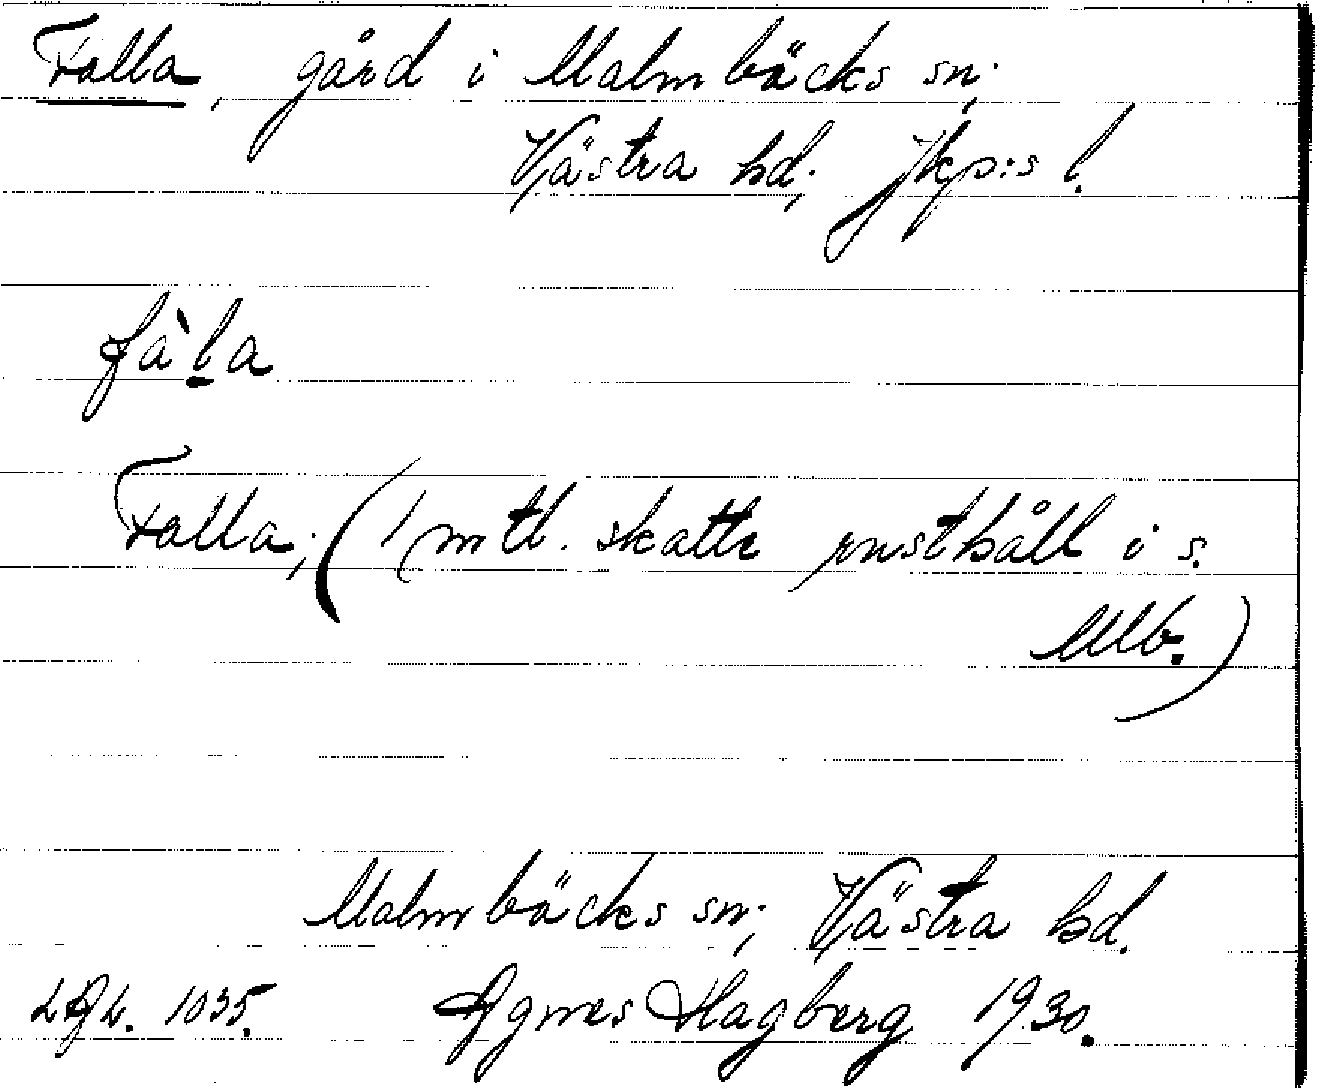 Falla, gård i Malmbäcks sn;
Västra hd; Jkp:s l.
fàl̠a
Falla; (1 mtl. skatte rusthåll i s.
Mb.)
Malmbäcks sn; Västra hd.
1035. Agnes Hagberg 1930.